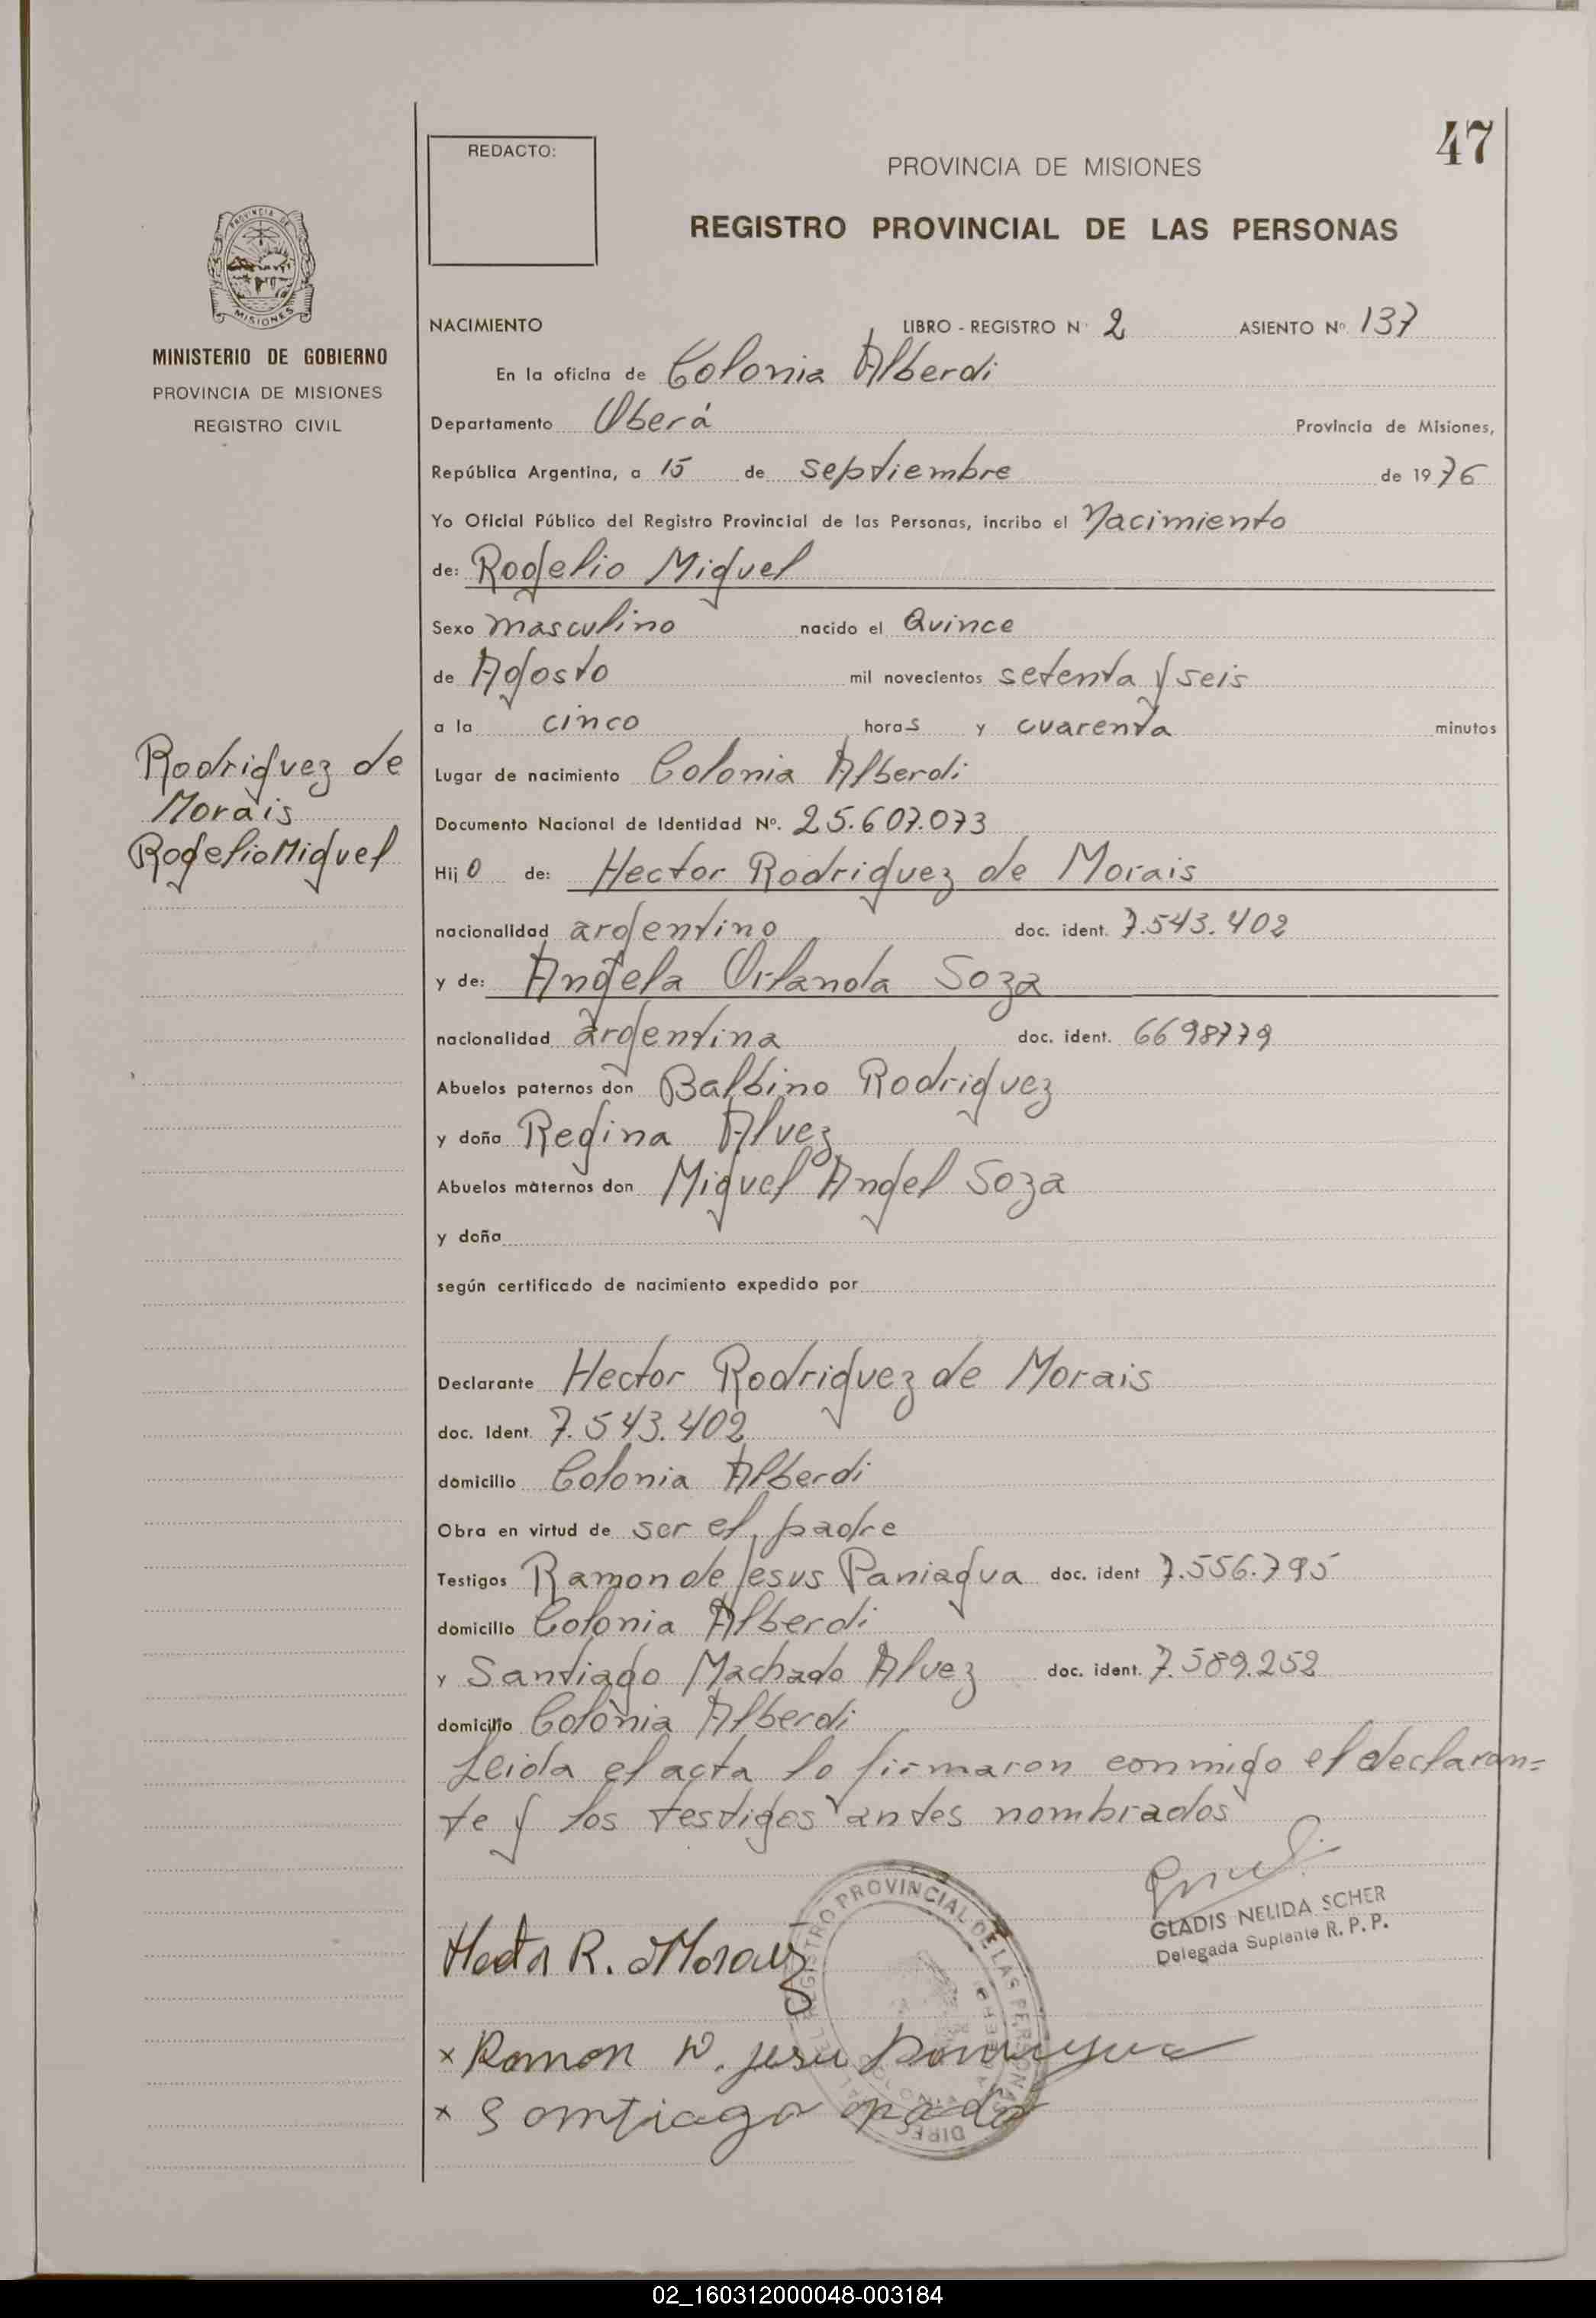 47
REDACTO:
PROVINCIA DE MISIONES
REGISTRO PROVINCIAL DE LAS PERSONAS
PROVINCIA DE
MISIONES
MINISTERIO DE GOBIERNO
PROVINCIA DE MISIONES
REGISTRO CIVIL
NACIMIENTO LIBRO - REGISTRO N° 2 ASIENTO Nº 137
En la oficina de Colonia Alberdi
Departamento Oberá Provincia de Misiones,
República Argentina, a 15 de septiembre de 1976
Yo Oficial Público del Registro Provincial de las Personas, incribo el Nacimiento
de: Rogelio Miguel
Sexo masculino nacido el Quince
de Agosto mil novecientos setenta y seis
a la cinco horas y cuarenta minutos
Rodriguez de
Morais
Rogelio Miguel
Lugar de nacimiento Colonia Alberdi
Documento Nacional de Identidad Nº. 25.607.073
Hijo de: Hector Rodriguez de Morais
nacionalidad argentino doc. ident. 7.543.402
y de: Angela Orlanda Soza
nacionalidad argentina doc. ident. 6698779
Abuelos paternos don Balbino Rodriguez
y doña Regina Alvez
Abuelos maternos don Miguel Angel Soza
y doña
según certificado de nacimiento expedido por
Declarante Hector Rodriguez de Morais
doc. Ident. 7.543.402
domicilio Colonia Alberdi
Obra en virtud de ser el padre
Testigos Ramon de Jesus Paniagua doc. ident 7.556.795
domicilio Colonia Alberdi
y Santiago Machado Alvez doc. ident. 7.589.252
domicilio Colonia Alberdi
Leida el acta lo firmaron conmigo el declaran=
te y los testigos antes nombrados
GLADIS NELIDA SCHER
Delegada Suplente R. P. P.
REGISTRO PROVINCIAL DE LAS PERSONAS
Hector R. d Morais
x Ramon D. Jesu Paniagua
x Santiago
02_160312000048-003184